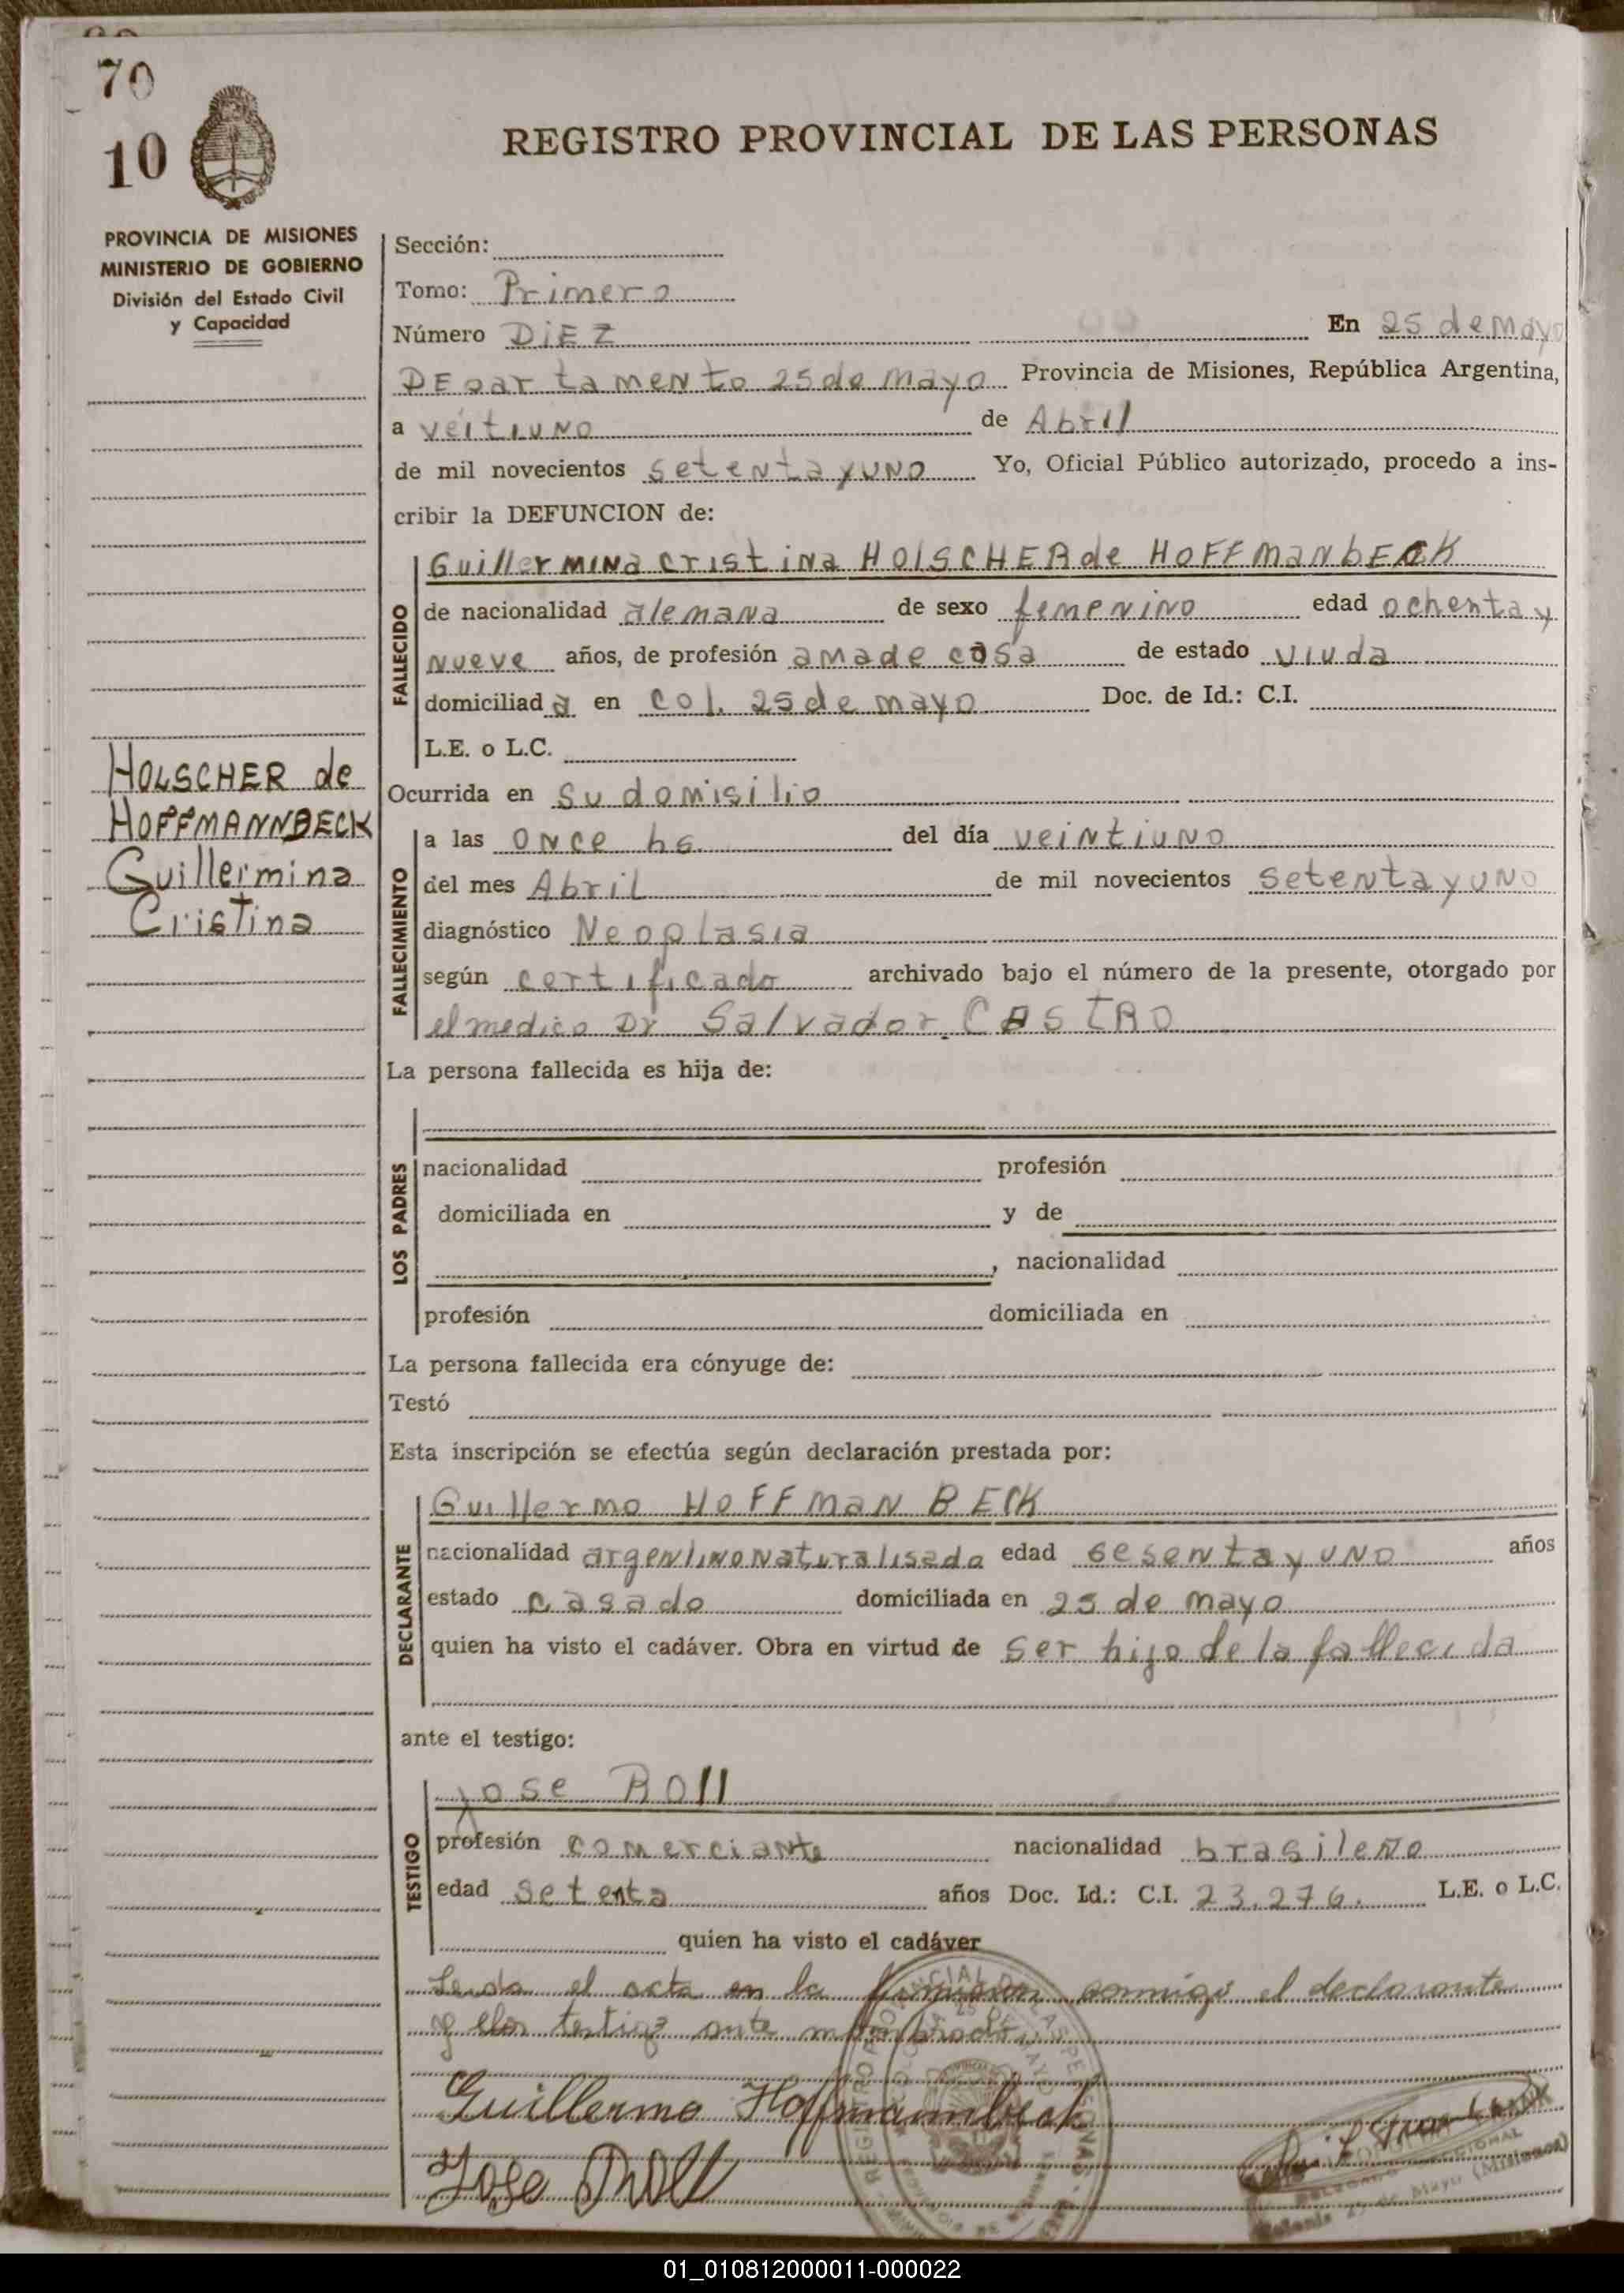 70
10
REGISTRO PROVINCIAL DE LAS PERSONAS
PROVINCIA DE MISIONES
MINISTERIO DE GOBIERNO
División del Estado Civil
y Capacidad
Sección:
Tomo: Primero
Número DiEZ En 25 de Mayo
DEpartamento 25 de Mayo Provincia de Misiones, República Argentina,
a veitiuno de Abril
de mil novecientos setenta y uno Yo, Oficial Público autorizado, procedo a ins-
cribir la DEFUNCION de:
FALLECIDO
Guillermina Cristina HOlSCHER de HOFFmanbECK
de nacionalidad alemana de sexo femenino edad ochenta y
nueve años, de profesión ama de casa de estado viuda
domiciliada en Col. 25 de mayo Doc. de Id.: C.I.
L.E. o L.C.
HOLSCHER de
HOFFMANNBECK
Guillermina
Cristina
Ocurrida en su domisilio
FALLECIMIENTO
a las once hs. del día veintiuno
del mes Abril de mil novecientos setenta y uno
diagnóstico Neoplasia
según certificado archivado bajo el número de la presente, otorgado por
el medico Dr Salvador CASTRO
La persona fallecida es hija de:
LOS PADRES
nacionalidad profesión
domiciliada en y de
, nacionalidad
profesión domiciliada en
La persona fallecida era cónyuge de:
Testó
Esta inscripción se efectúa según declaración prestada por:
DECLARANTE
Guillermo HOFFMAN BECK
nacionalidad argentino naturalisado edad sesenta y uno años
estado casado domiciliada en 25 de mayo
quien ha visto el cadáver. Obra en virtud de ser hijo de la fallecida
ante el testigo:
TESTIGO
Jose ROll
profesión comerciante nacionalidad brasileño
edad setenta años Doc. Id.: C.I. 23.276. L.E. o L.C.
quien ha visto el cadáver
Leida el acta en la conmigo el declarante
testigo ante
Guillermo Hoffmannbeck
Jose Roll
01_010812000011-000022